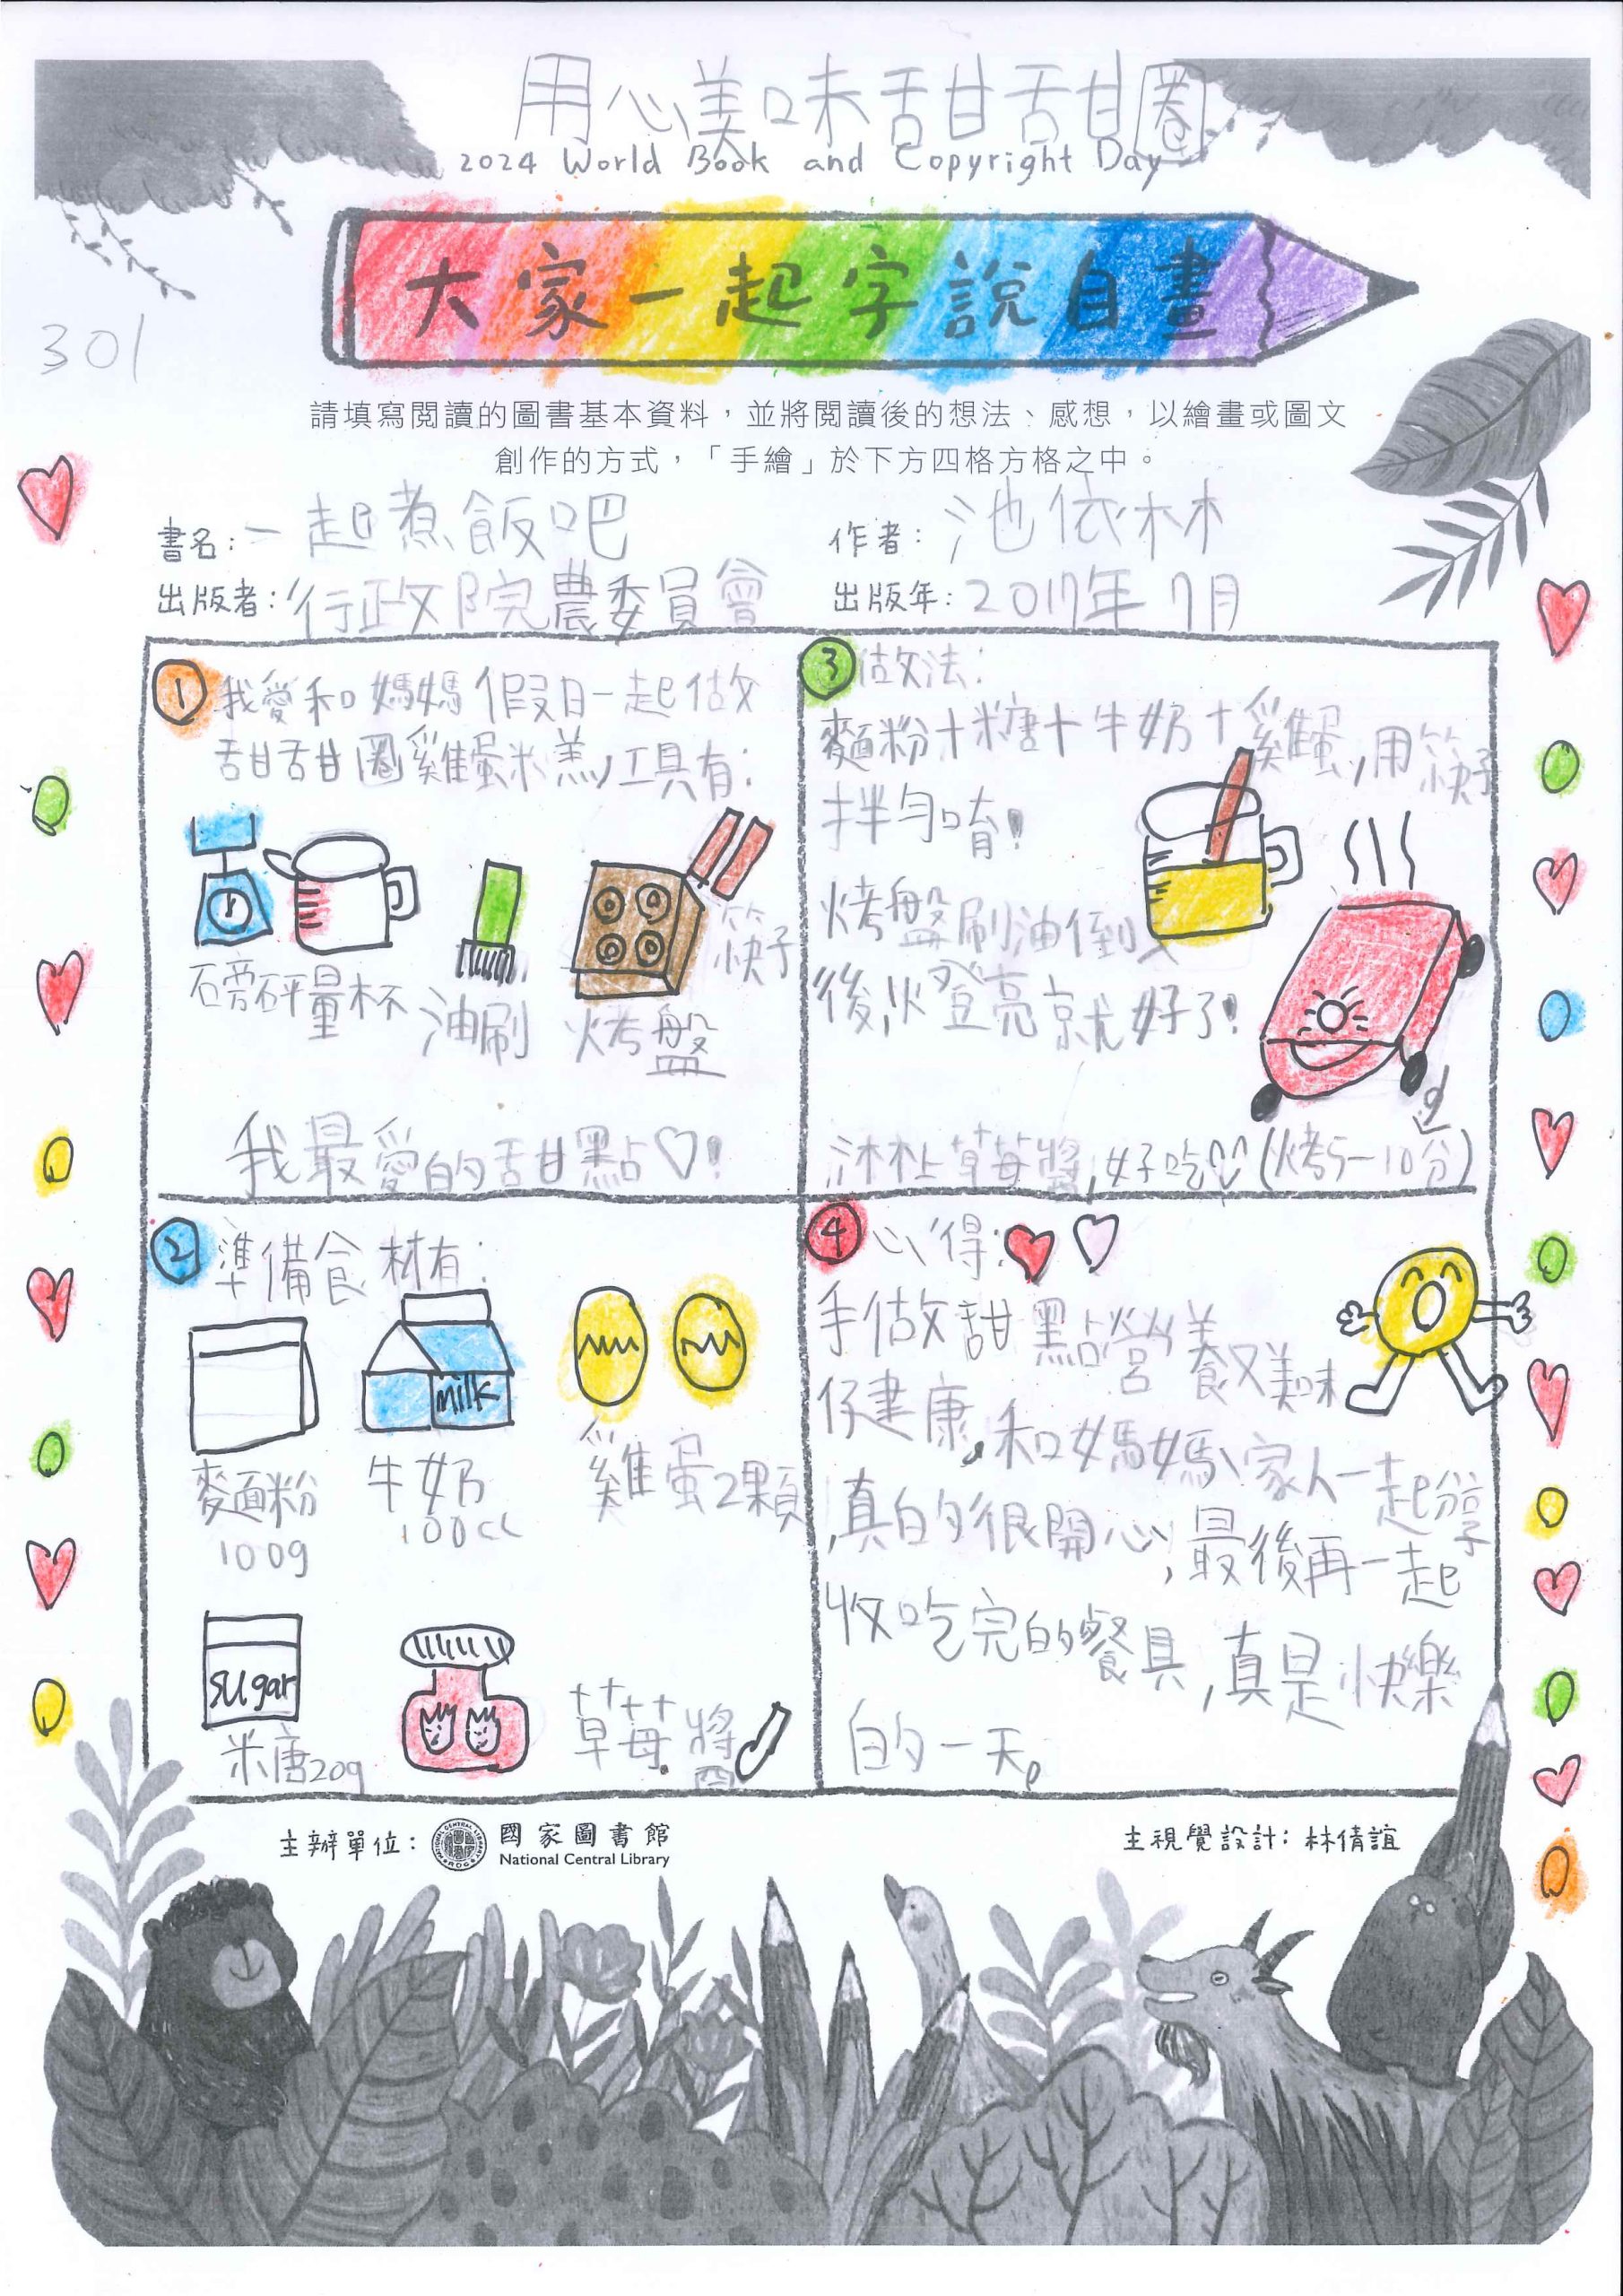 用心美味甜甜圈
2024 World Book and Copyright Day
大家一起字說自畫
301
請填寫閱讀的圖書基本資料，並將閱讀後的想法、感想，以繪畫或圖文
創作的方式，「手繪」於下方四格方格之中。
書名：一起煮飯吧
作者：池依林
出版者：行政院農委員會
出版年：2017年7月
1 我愛和媽媽假日一起做
甜甜圈雞蛋糕，工具有：
磅秤 量杯 油刷 烤盤 筷子
我最愛的甜點♡！
2 準備食材有：
milk
麵粉
100g
牛奶
100cc
雞蛋2顆
sugar
糖20g
草莓醬
3 做法：
麵粉＋糖＋牛奶＋雞蛋，用筷子
拌勻唷！
烤盤刷油倒入
後，燈亮就好了！
沐上草莓醬，好吃♡(烤5－10分)
4 心得：♡♡
手做甜點營養又美味
仔健康，和媽媽、家人一起分享
，真的很開心，最後再一起
收吃完的餐具，真是快樂
的一天。
主辦單位：國家圖書館
National Central Library
主視覺設計：林倩誼